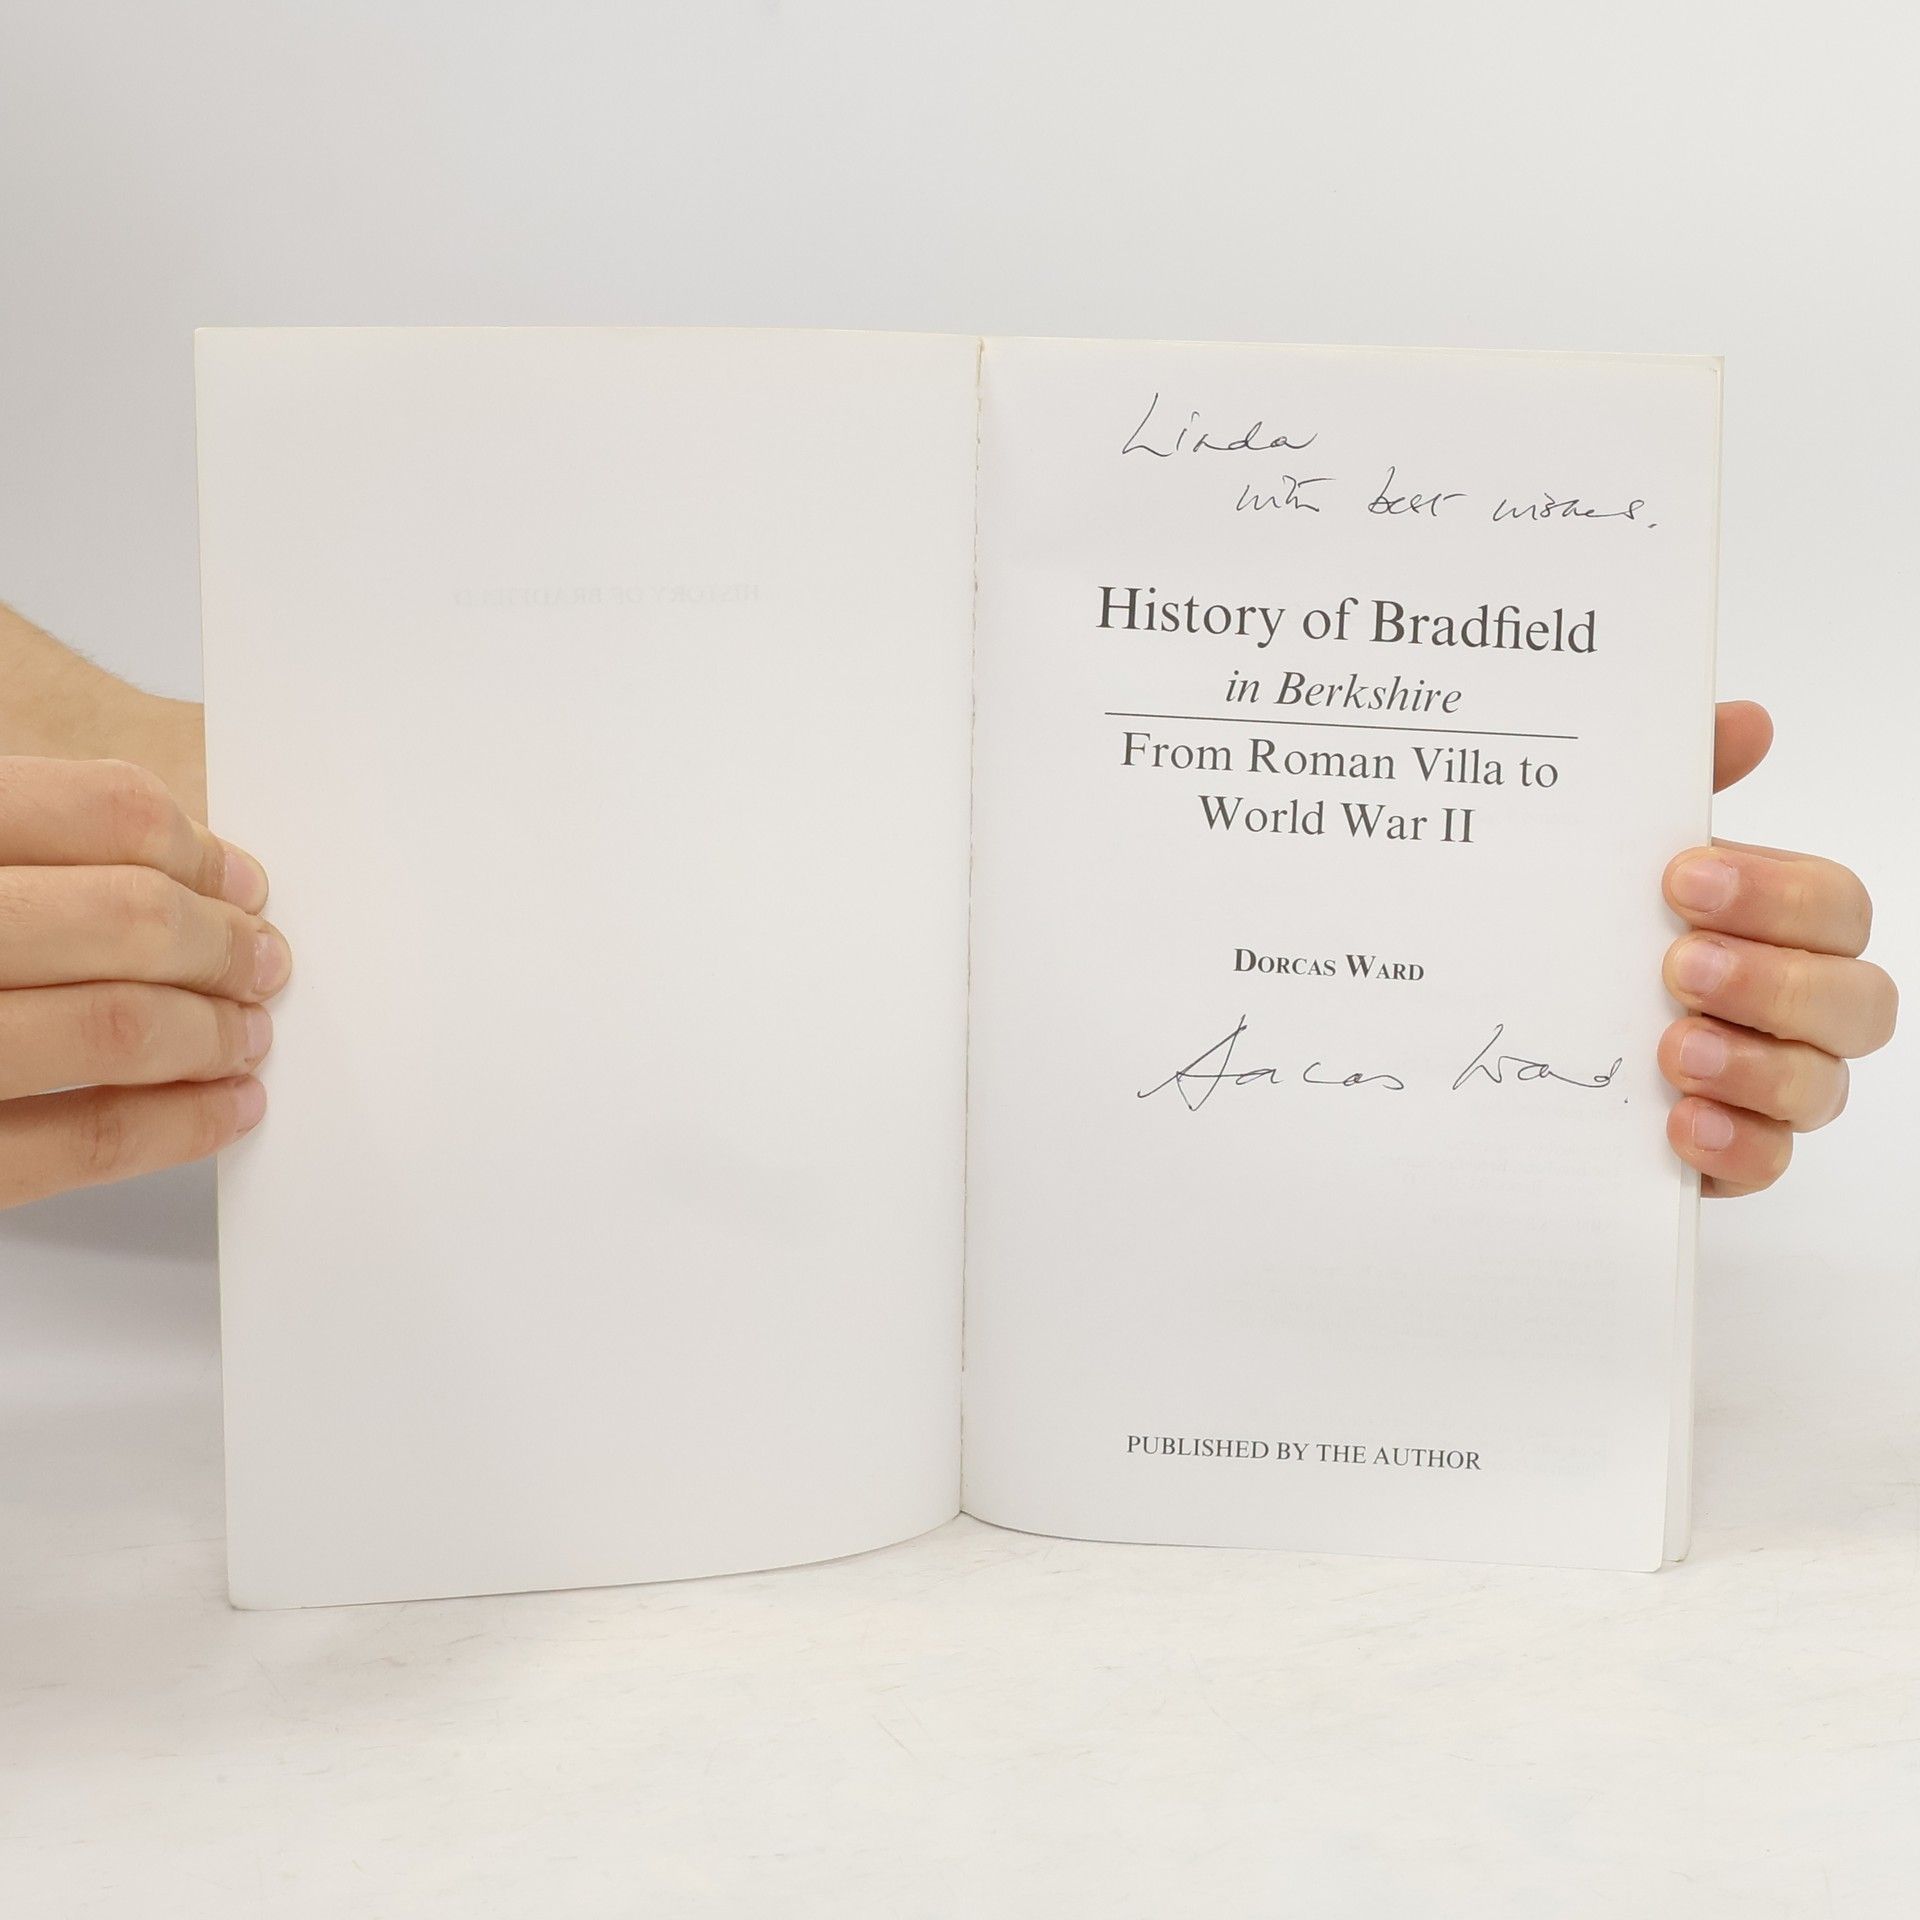 HISTORY OF BRADFIELD
Linda
with best wishes.
History of Bradfield
in Berkshire
From Roman Villa to
World War II
DORCAS WARD
Dorcas Ward.
PUBLISHED BY THE AUTHOR